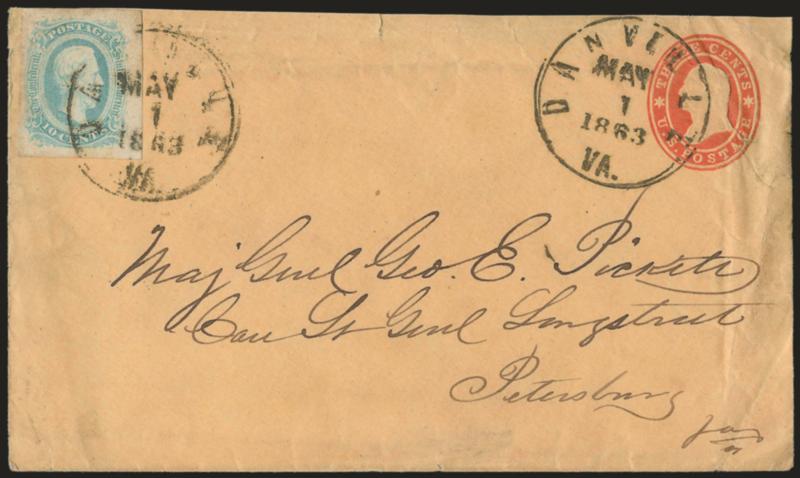 POSTAGE
10 CENTS
MAY
1
1863
VA.
DANVILLE
MAY
1
1863
VA.
THREE CENTS
U.S. POSTAGE
Maj Genl Geo. E. Pickett
Care Lt Genl Longstreet
Petersburg